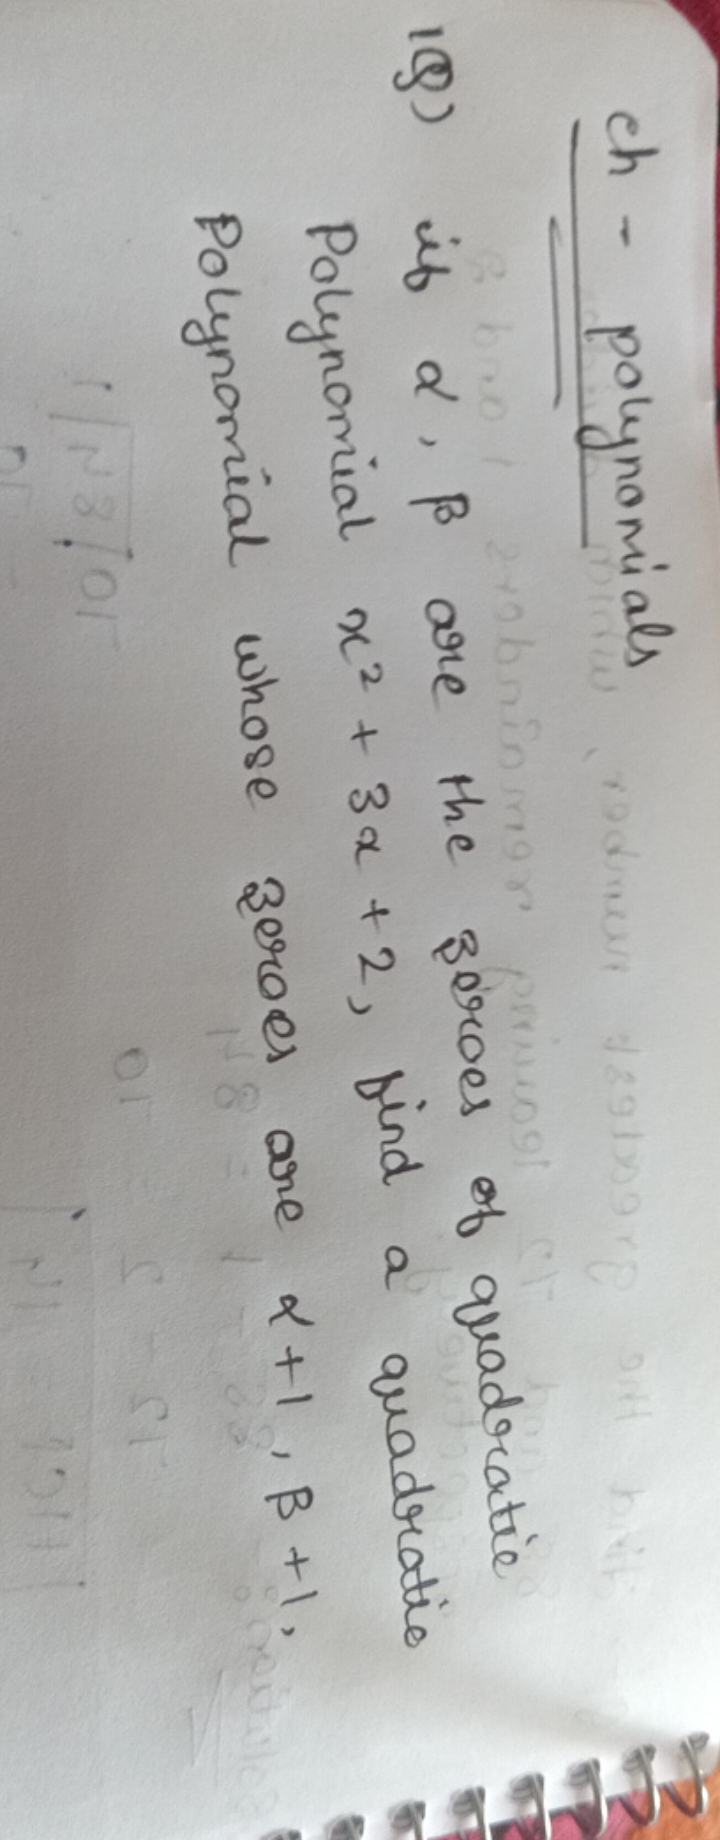 ch - polynomials
1Q) if α, β are the zeroes of quadratic
Polynomial x² + 3x + 2, find a quadratic
Polynomial whose zeroes are α+1, β+1,